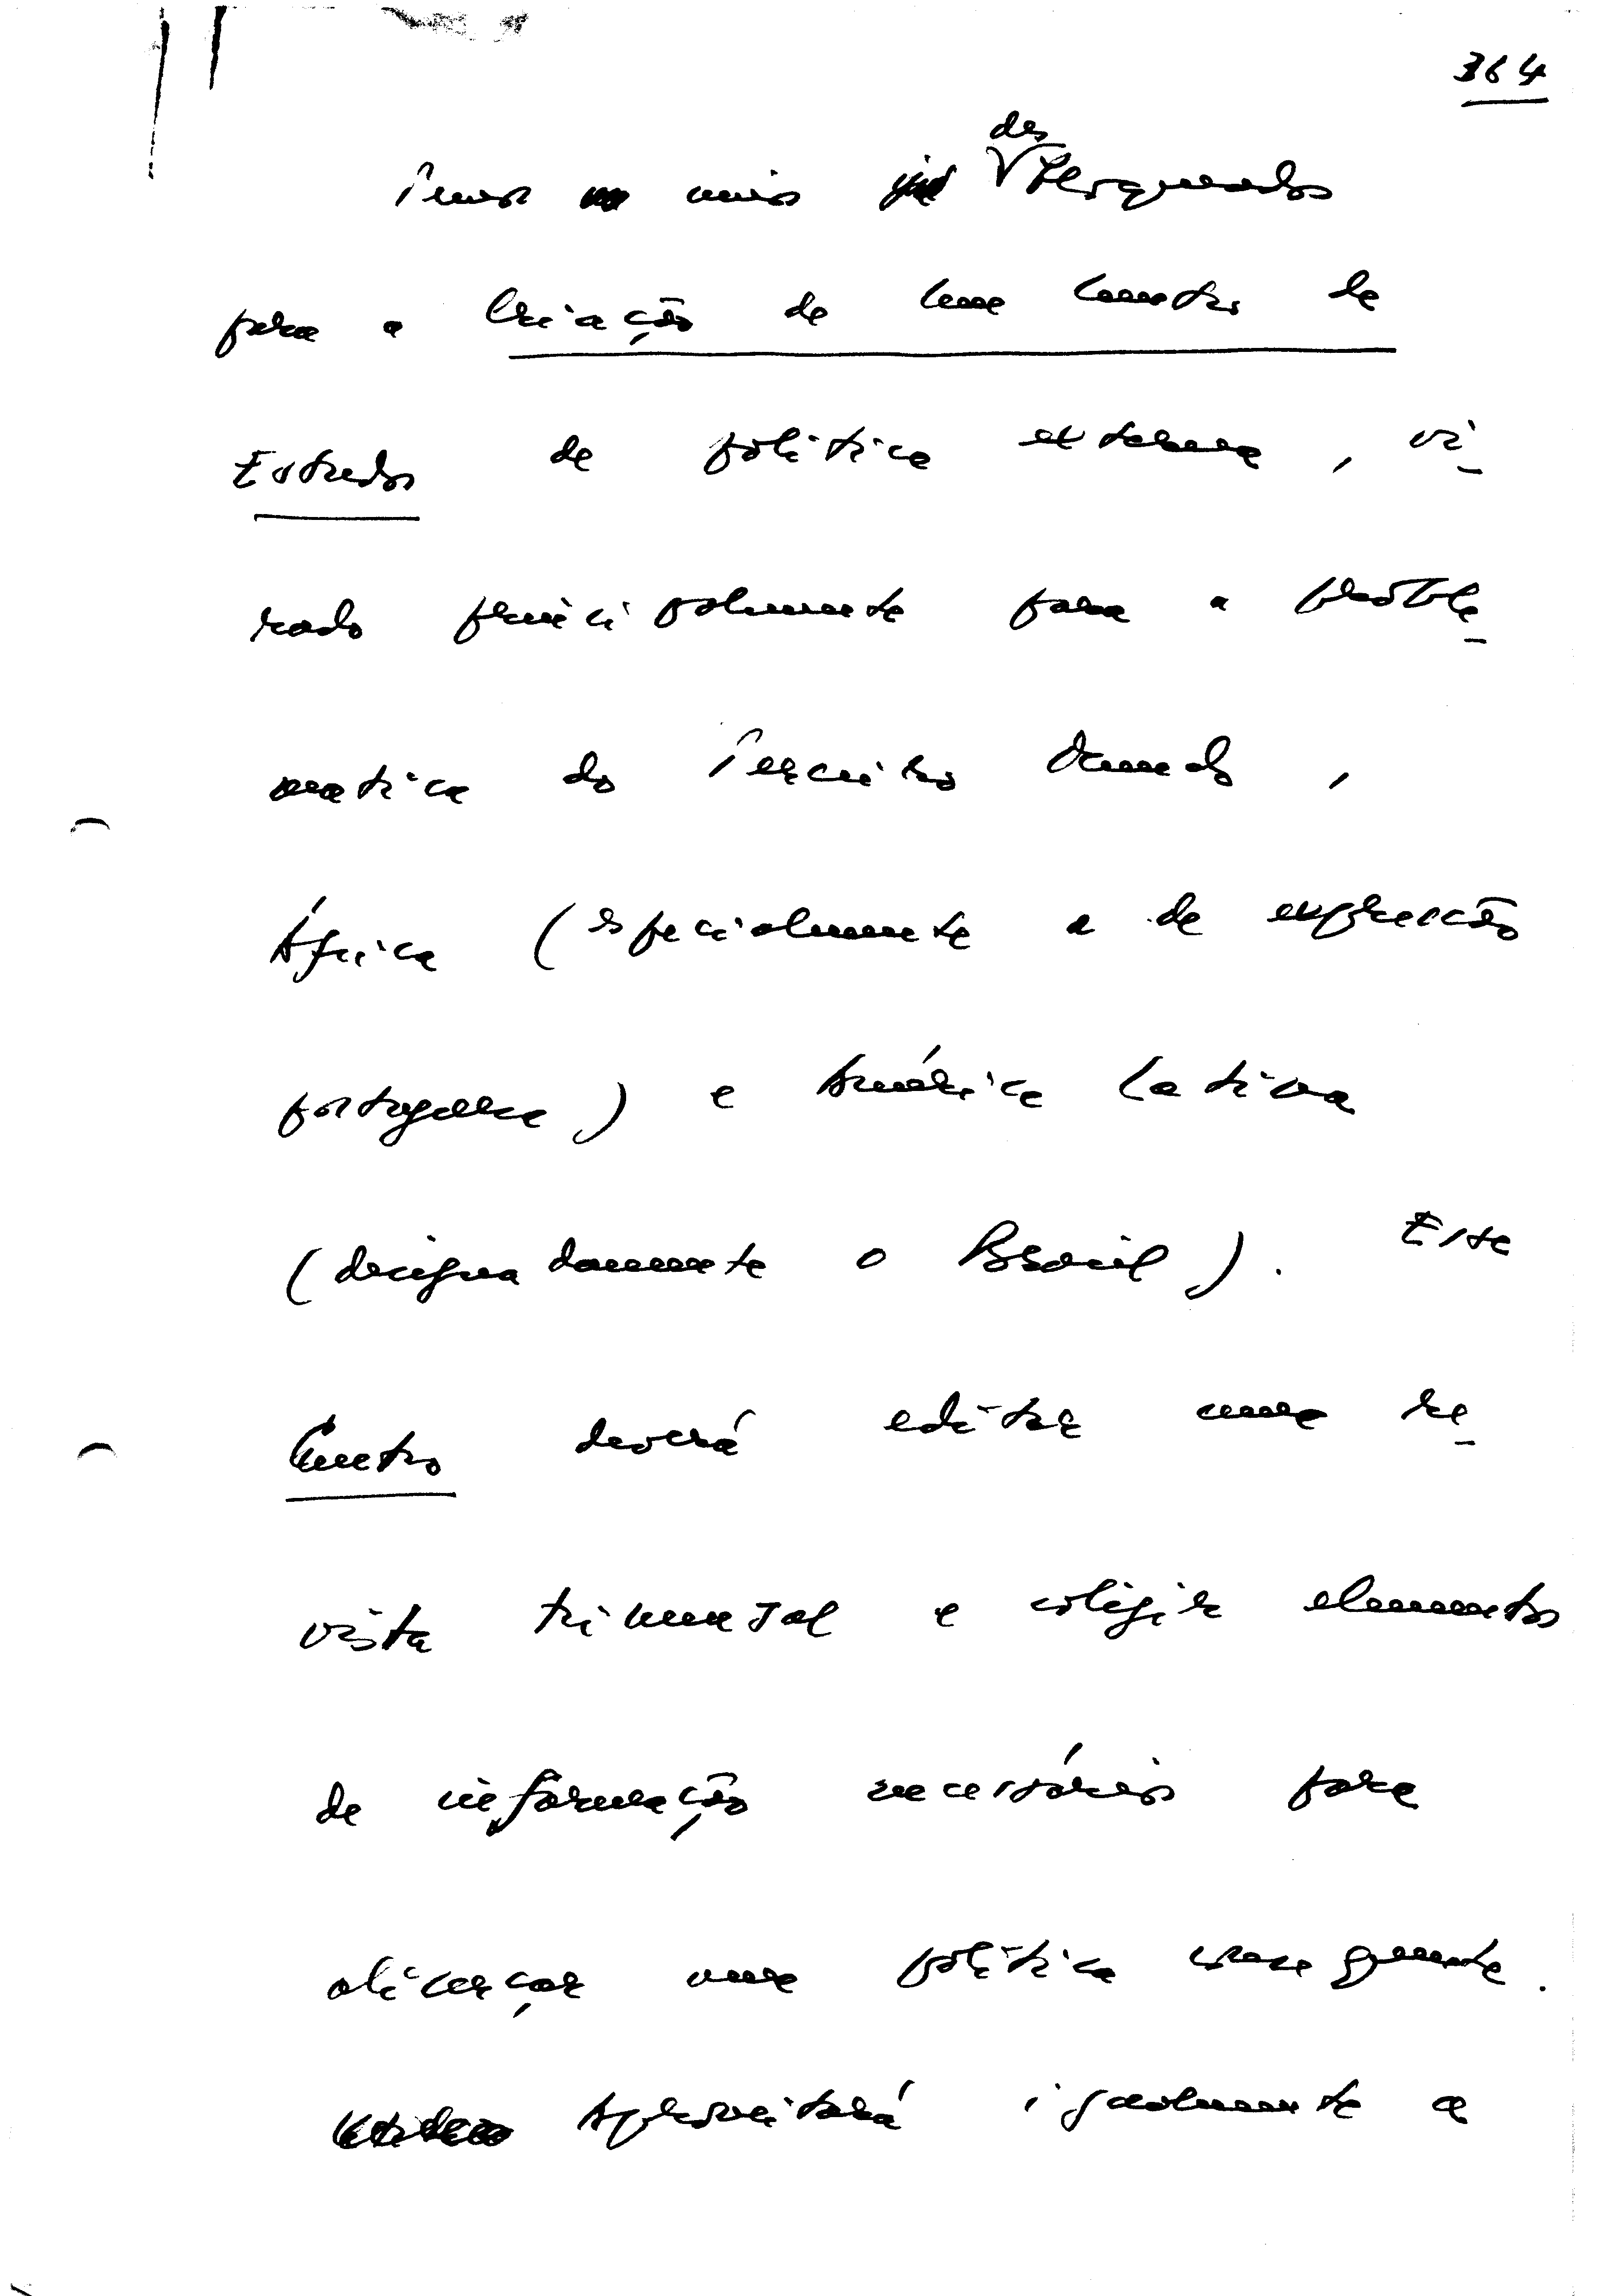 364
des
Temos meios
para a criação de um Centro de
Estudos de política externa, vi-
rado principalmente para a proble-
mática do Terceiro Mundo,
África (especialmente a de expressão
portuguesa) e América Latina
(designadamente o Brasil). Este
Centro deverá editar uma re-
vista trimensal e coligir elementos
de informação necessários para
alicerçar uma política consequente.
Aproveitará igualmente a